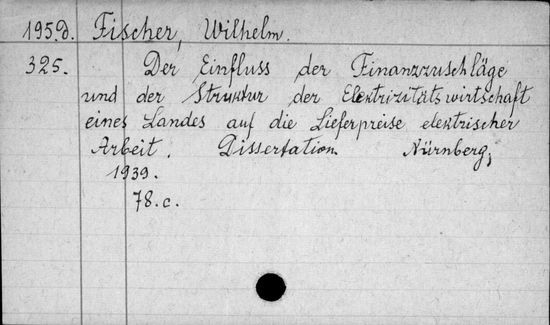 195.d. Fischer, Wilhelm.
325. Der Einfluss der Finanzzuschläge
und der Struktur der Elektrizitätswirtschaft
eines Landes auf die Lieferpreise elektrischer
Arbeit. Dissertation Nürnberg,
1939.
78.c.